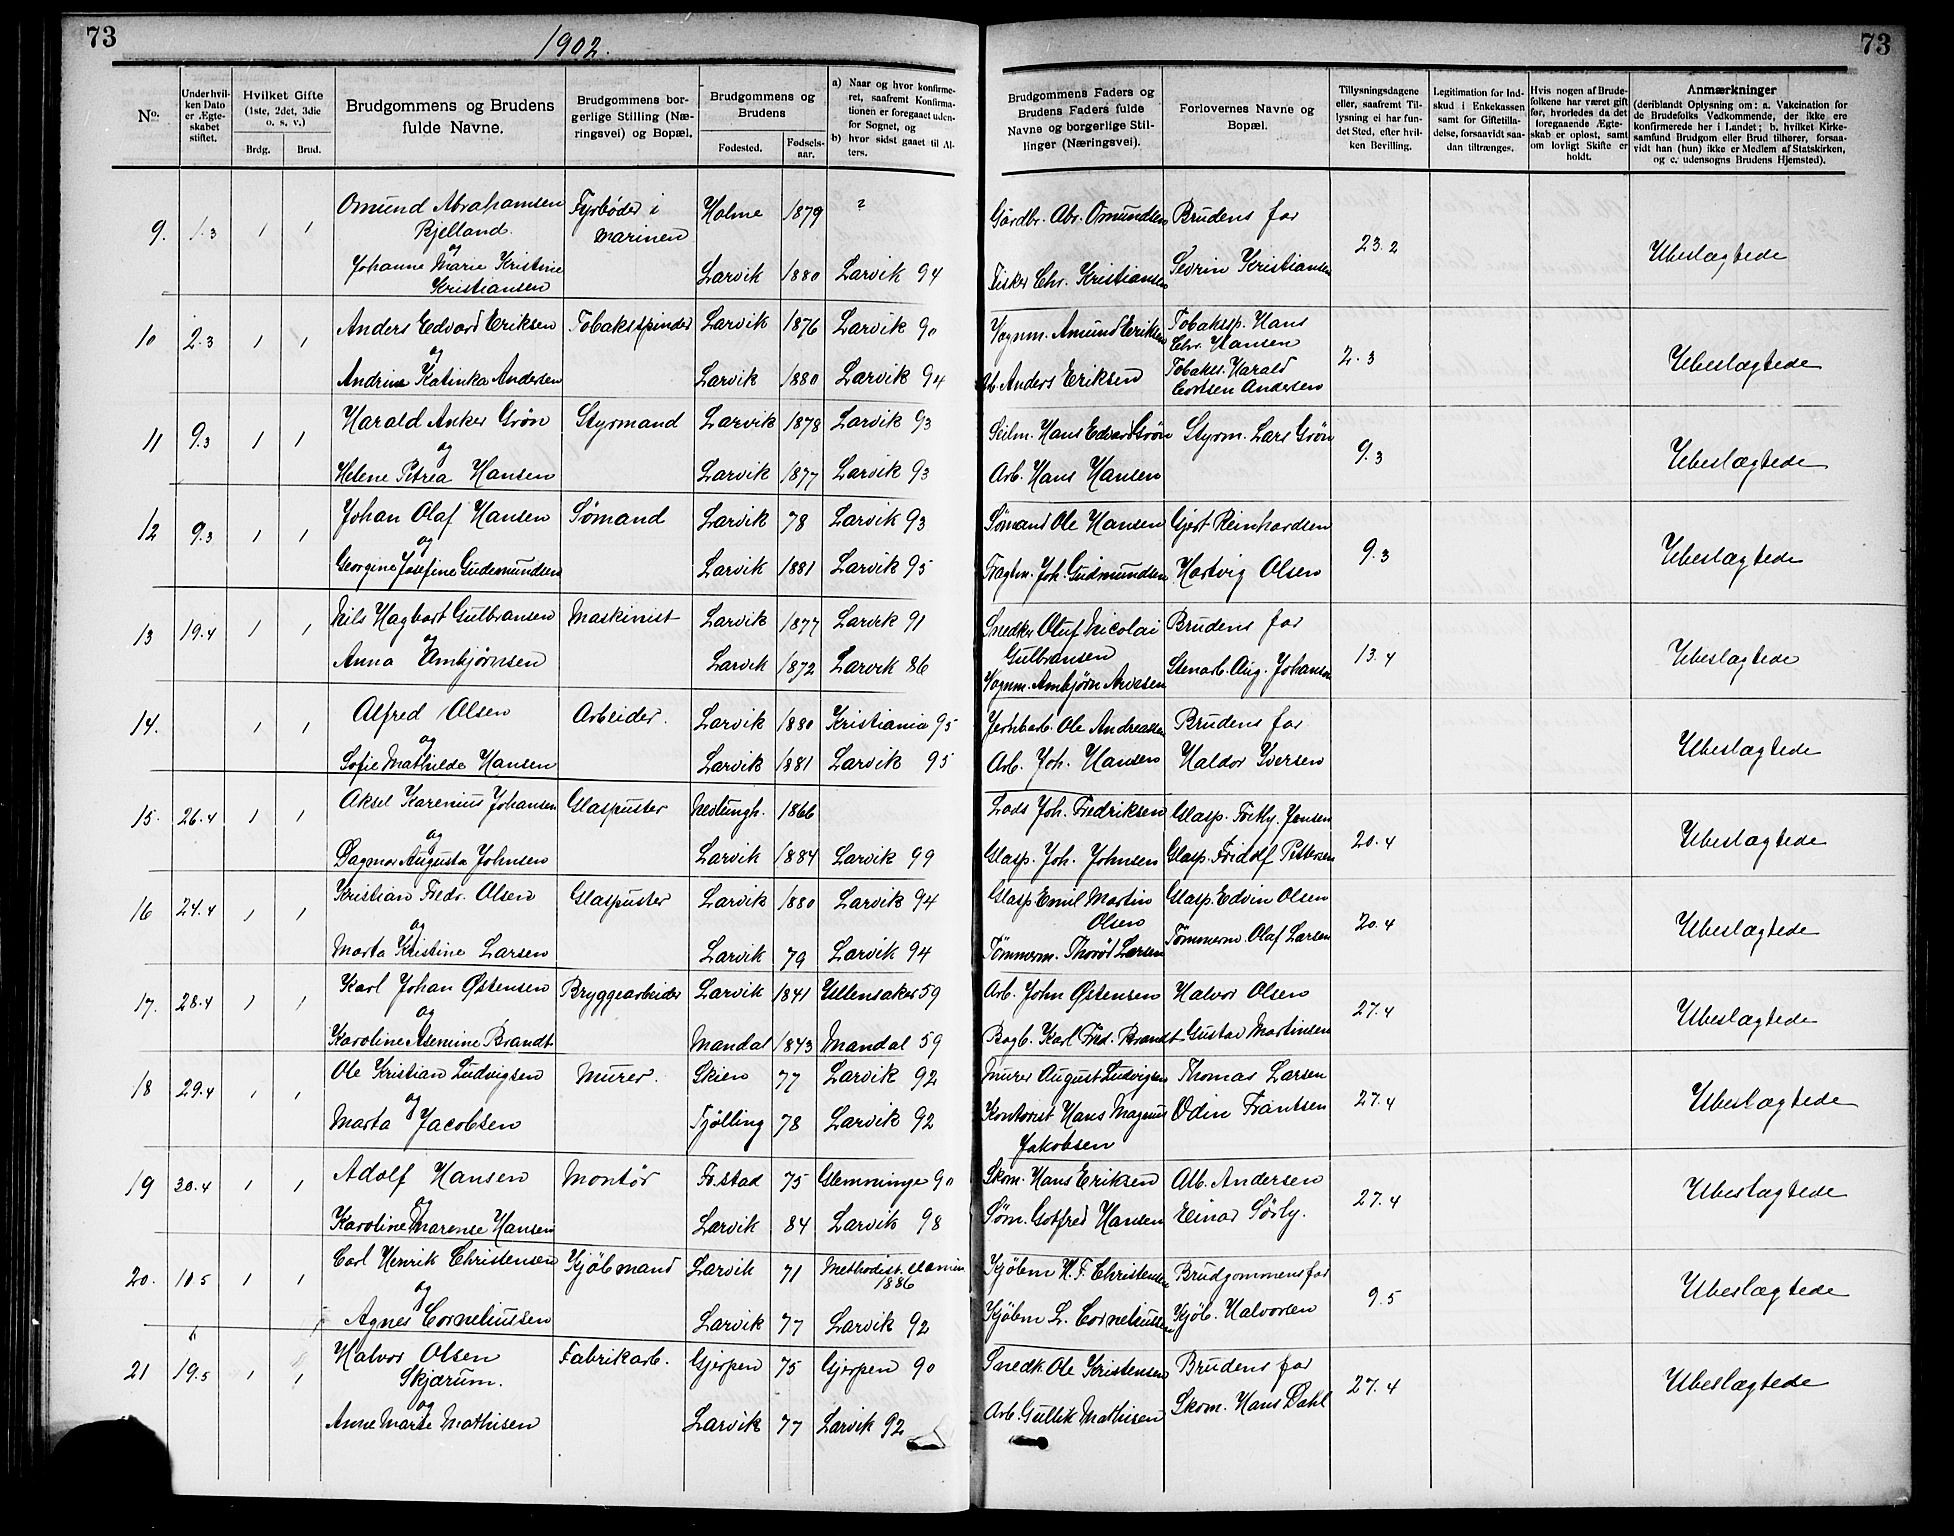 73
1902.
73
No.
Under hvil-
ken Dato
er Ægte-
skabet
stiftet.
Hvilket Gifte
(1ste, 2det, 3die
o. s. v.)
Brdg.
Brud.
Brudgommens og Brudens
fulde Navne.
Brudgommens bor-
gerlige Stilling (Næ-
ringsvei) og Bopæl.
Brudgommens og
Brudens
Fødested.
Fødsels-
aar.
a) Naar og hvor konfirme-
ret, saafremt Konfirma-
tionen er foregaaet uden-
for Sognet, og
b) hvor sidst gaaet til Al-
ters.
Brudgommens Faders og
Brudens Faders fulde
Navne og borgerlige Stil-
linger (Næringsvei).
Forlovernes Navne og
Bopæl.
Tillysningsdagene
eller, saafremt Til-
lysning ei har fun-
det Sted, efter hvil-
ken Bevilling.
Legitimation for Ind-
skud i Enkekassen
samt for Giftetilla-
delse, forsaavidt saa-
dan tiltrænges.
Hvis nogen af Brude-
folkene har været gift
før, hvorledes da det
foregaaende Ægte-
skab er opløst, samt
om lovligt Skifte er
holdt.
Anmærkninger
(deriblandt Oplysning om: a. Vakcination for
de Brudefolks Vedkommende, der ikke ere
konfirmerede her i Landet; b. hvilket Kirke-
samfund Brudgom eller Brud tilhører, forsaa-
vidt han (hun) ikke er Medlem af Statskirken,
og c. udensogns Brudens Hjemsted).
9. 1.3 1 1 Omund Abrahamsen Fyrbøder i Holme 1879 ? Gårdbr. Abr. Omundsen Brudens far 23.2 Ubeslægtede
Bjelland. marinen
og
Johanne Marie Kristine Larvik 1880 Larvik 94 Fisker Chr. Kristiansen Sevrin Kristiansen
Kristiansen
10 2.3 1 1 Anders Edvard Eriksen Tobakspinder Larvik 1876 Larvik 90 Vognm. Amund Eriksen Tobakssp. Hans 2.3 Ubeslægtede
og Chr. Hansen
Andrine Katinka Andersen Larvik 1880 Larvik 94 Arb. Anders Eriksen Tobakss. Harald
Andersen
11 9.3 1 1 Harald Anker Grøn Styrmand Larvik 1878 Larvik 93 Seilm. Hans Edvard Grøn Styrm. Lars Grøn 9.3 Ubeslægtede
og
Helene Petrea Hansen Larvik 1877 Larvik 93 Arb. Hans Hansen
12 9.3 1 1 Johan Olaf Hansen Sømand Larvik 78 Larvik 93 Sømand Ole Hansen Gjert Reinhardsen 9.3 Ubeslægtede
og
Georgine Josefine Gudemundsen Larvik 1881 Larvik 95 Fragtm. Joh. Gudmundsen Hartvig Olsen
13 19.4 1 1 Nils Hagbart Gulbransen Maskinist Larvik 1877 Larvik 91 Snedker Oluf Nicolai Brudens far 13.4 Ubeslægtede
og Gulbransen
Anna Ambjørnsen Larvik 1872 Larvik 86 Vognm. Ambjørn Arvesen Stenarb. Aug. Johansen
14. 1 1 Alfred Olsen Arbeider. Larvik 1880 Kristiania 95 Jernbarb. Ole Andreassen Brudens far Ubeslægtede
og
Sofie Mathilde Hansen Larvik 1881 Larvik 95 Arb. Joh. Hansen Haldor Iversen
15. 26.4 1 1 Aksel Karenius Johansen Glaspuster Nedtungh. 1866 Lods Joh. Fredriksen Glasp. Jensen 20.4 Ubeslægtede
og
Dagmar Augusta Johnsen Larvik 1884 Larvik 99 Glasp. Joh. Johnsen Glasp. Fridolf Pettersen
16 24.4 1 1 Kristian Fredr. Olsen Glaspuster Larvik 1880 Larvik 94 Glasp Emil Martin Glasp. Edvin Olsen 20.4 Ubeslægtede
og Olsen
Marta Kristine Larsen Larvik 79 Larvik 94 Tømmerm. Larsen Tømmerm. Olaf Larsen
17. 28.4 1 1 Karl Johan Østensen Bryggearbeider Larvik 1841 Ullensaker 59 Arb. John Østensen Halvor Olsen 27.4 Ubeslægtede
og
Karoline Asemine Brandt Mandal 1843 Mandal 59 Bagb. Karl Fred. Brandt Gustav Martinsen
18 29.4 1 1 Ole Kristian Ludvigsen Murer. Skien 77 Larvik 92 Murer August Ludvigsen Thomas Larsen 27.4 Ubeslægtede
og
Marta Jacobsen Tjølling 78 Larvik 92 Kontorist Hans Magnus Odin Frantsen
Jakobsen
19 30.4 1 1 Adolf Hansen Montör Fr.stad 75 Glemminge 90 Skom. Hans Eriksen Alb. Andersen 27.4 Ubeslægtede
og
Karoline Marense Hansen Larvik 84 Larvik 98 Søm. Gotfred Hansen Einar Sørly.
20. 10.5 1 1 Carl Henrik Christensen Kjöbmand Larvik 71 Methodist. Kjöbm H. F. Christensen Brudgommens far 9.5 Ubeslægtede
og 1886
Agnes Corneliussen Larvik 77 Larvik 92 Kjöbm L. Corneliussen Kjöb. Halvorsen
21 19.5 1 1 Halvor Olsen Fabrikarb. Gjerpen 75 Gjerpen 90 Snedk. Ole Kristensen Brudens far 27.4 Ubeslægtede
Skjærum.
og
Anne Marie Mathisen Larvik 77 Larvik 92 Arb. Gullik Mathisen Skom. Hans Dahl